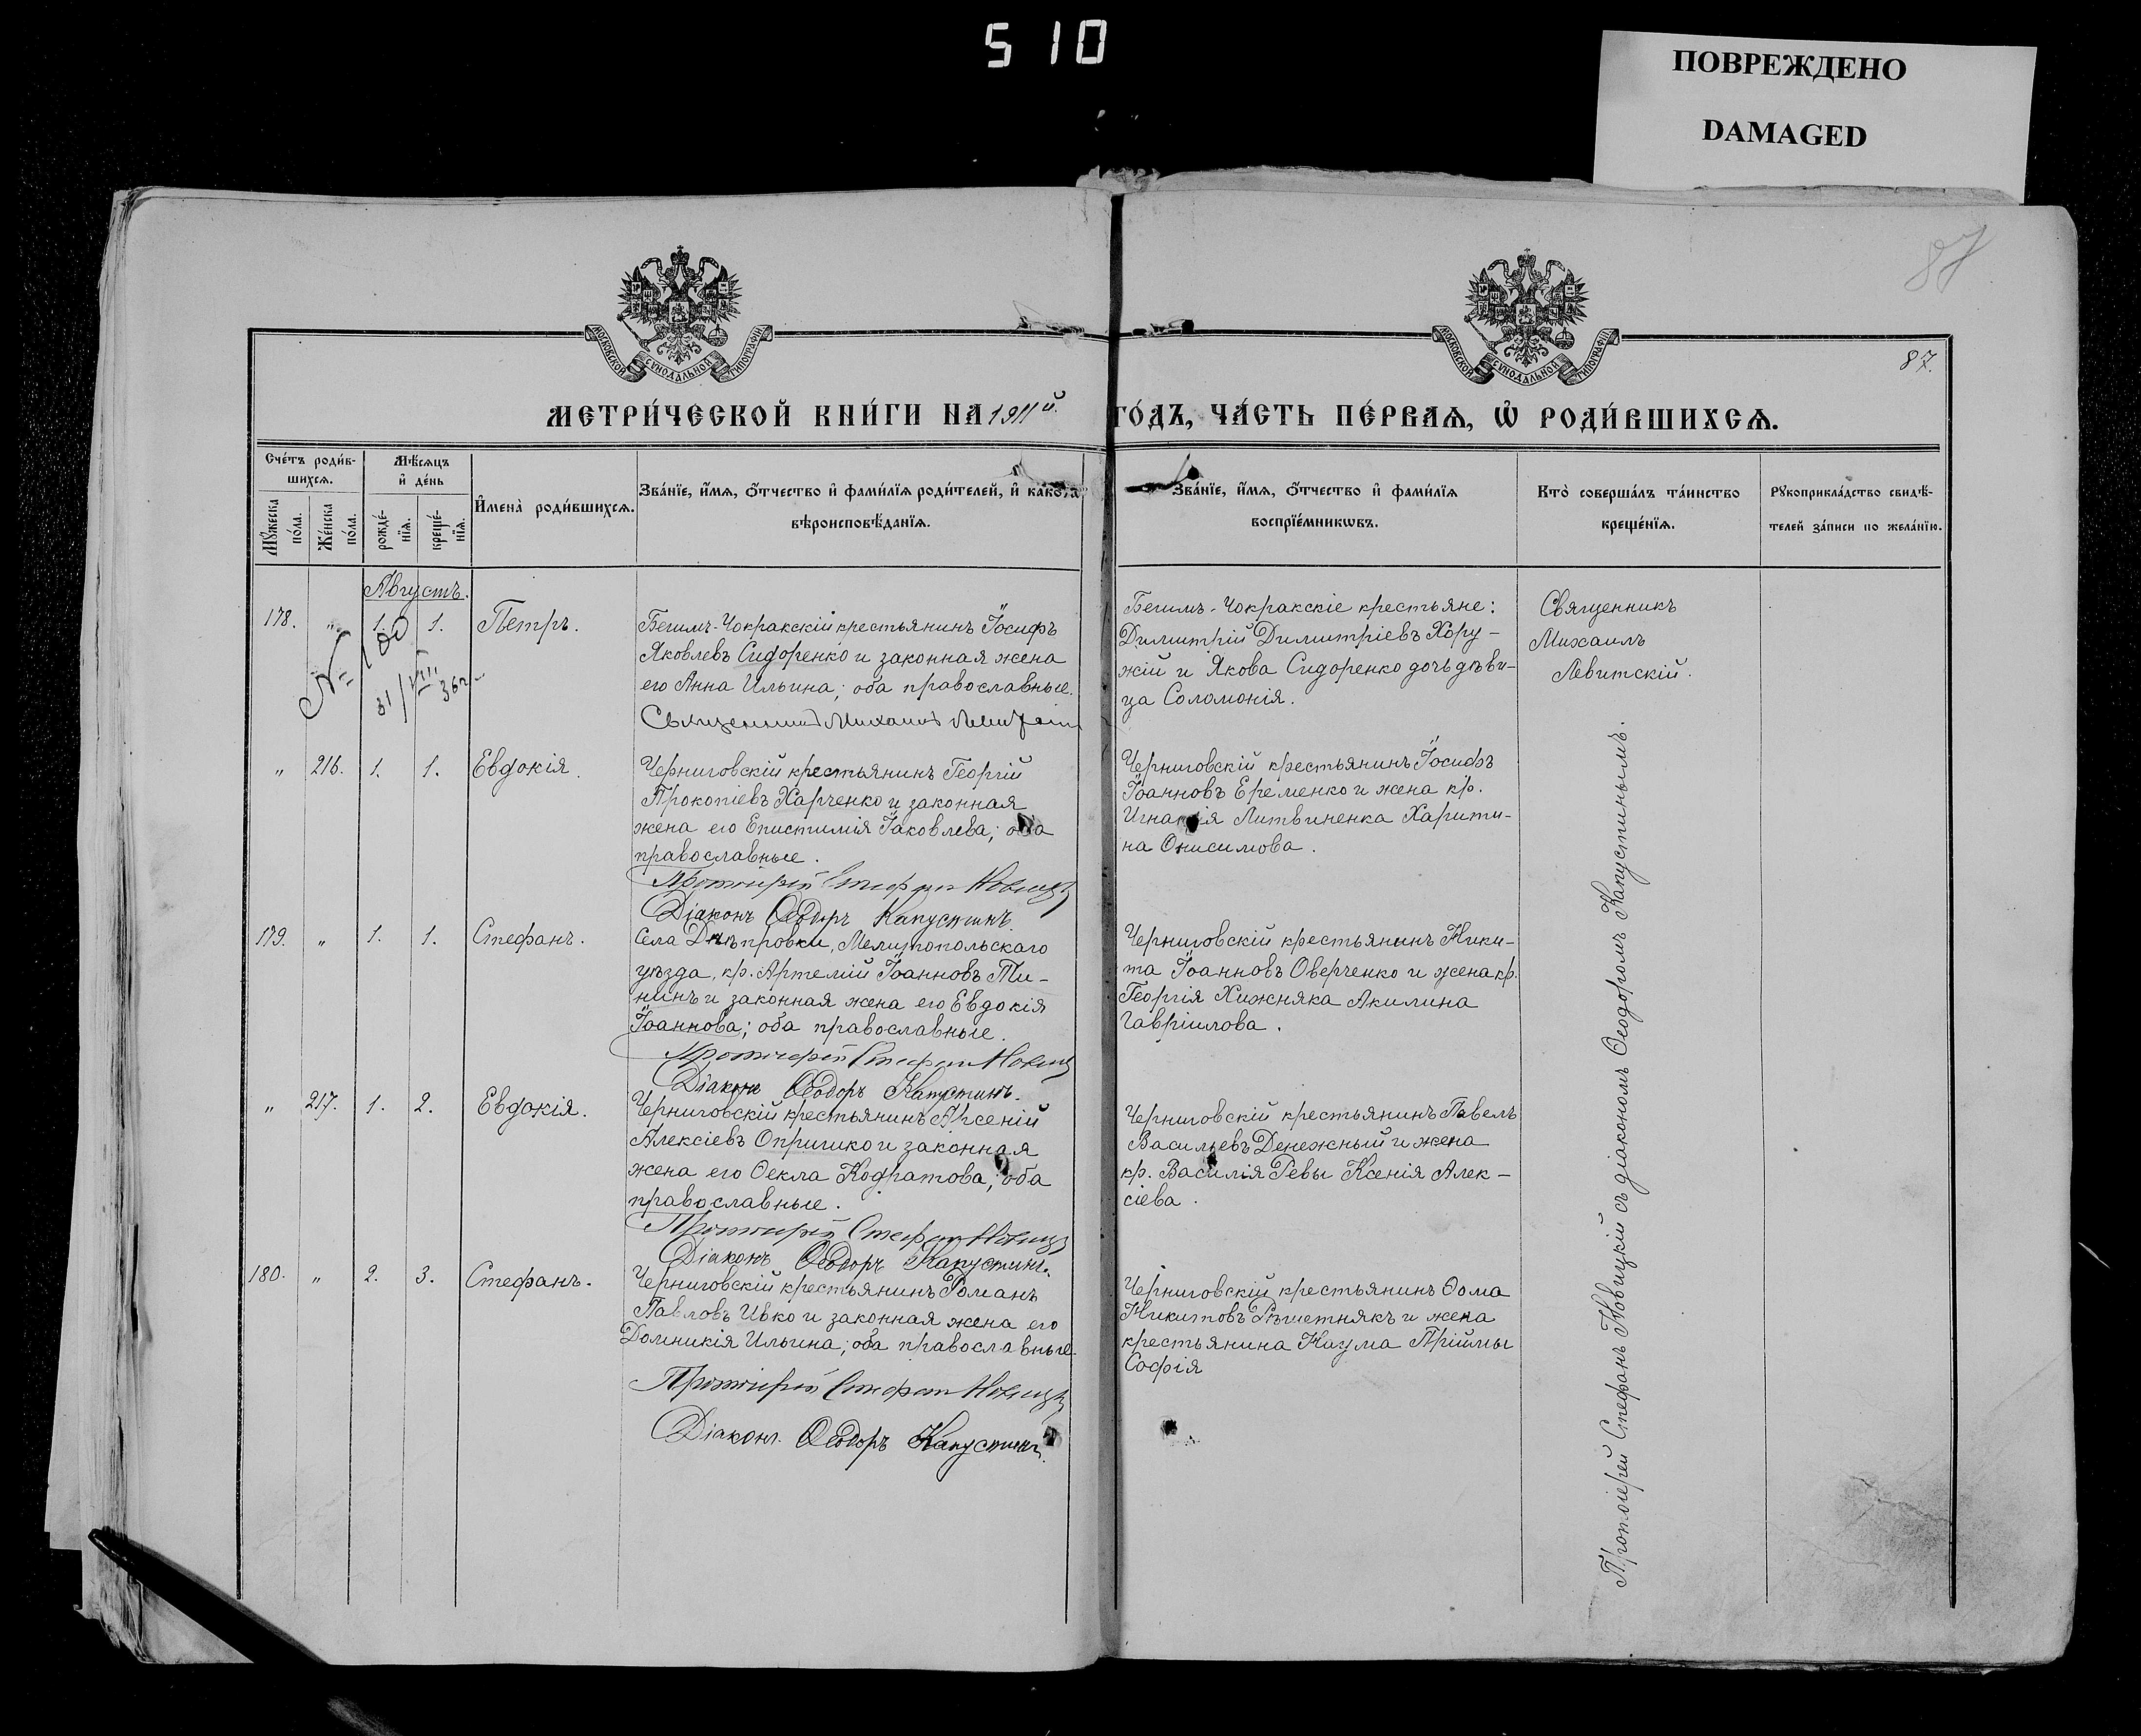 510
ПОВРЕЖДЕНО
DAMAGED
87
87.
МОСКОВСКОЙ СѴНОДАЛЬНОЙ ТИПОГРАФІИ
МОСКОВСКОЙ СѴНОДАЛЬНОЙ ТИПОГРАФІИ
МЕТРИ́ЧЕСКОЙ КНИ́ГИ НА 1911й. ГО́ДЪ, ЧА́СТЬ ПЕ́РВАѦ, Ѡ҆ РОДИ́ВШИХСѦ.
Сче́тъ роди́в-
шихсѧ.
Мꙋ́жеска
по́ла.
Же́нска
по́ла.
Мѣ́сѧцъ
и҆ де́нь
рожде́-
нїѧ.
креще́-
нїѧ.
И҆мена̀ роди́вшихсѧ.
Зва́нїе, и҆́мѧ, ѻ҆́тчество и҆ фами́лїѧ роди́телей, и҆ како́гѡ
вѣроисповѣ́данїѧ.
Зва́нїе, и҆́мѧ, ѻ҆́тчество и҆ фами́лїѧ
воспрїе́мникѡвъ.
Кто̀ соверша́лъ та́инство
креще́нїѧ.
Рꙋкоприкла́дство свидѣ́-
телей за́писи по жела́нїю.
Августъ.
178. „ 1. 1. Петръ.
№ 180
31/VIII
Бегимъ-Чокракскій крестьянинъ Іосифъ
Яковлевъ Сидоренко и законная жена
его Анна Ильина; оба православные.
Священникъ Михаилъ Левитскій
Бегимъ-Чокракскіе крестьяне:
Димитрій Димитріевъ Хору-
жій и Якова Сидоренко дочь дѣви-
ца Соломонія.
Священникъ
Михаилъ
Левитскій.
„ 216. 1. 1. Евдокія.
Черниговскій крестьянинъ Георгій
Прокопіевъ Харченко и законная
жена его Епистимія Іаковлева; оба
православные.
Протоіерей Стефан Новицкій
Діаконъ Ѳеодоръ Капустинъ.
Черниговскій крестьянинъ Іосифъ
Іоанновъ Еременко и жена кр.
Игнатія Литвиненка Харити-
на Онисимова.
179. „ 1. 1. Стефанъ.
Села Днѣпровки, Мелитопольскаго
уѣзда, кр. Артемій Іоанновъ Ти-
нинъ и законная жена его Евдокія
Іоаннова; оба православные.
Протоіерей Стефан Новицкій
Діаконъ Ѳеодоръ Капустинъ.
Черниговскій крестьянинъ Ники-
та Іоанновъ Оверченко и жена кр.
Георгія Хижняка Акилина
Гавріилова.
„ 217. 1. 2. Евдокія.
Черниговскій крестьянинъ Арсеній
Алексіевъ Опришко и законная
жена его Ѳекла Кодратова; оба
православные.
Протоіерей Стефан Новицкій
Діаконъ Ѳеодоръ Капустинъ.
Черниговскій крестьянинъ Павелъ
Васильевъ Денежный и жена
кр. Василія Ревы Ксенія Алек-
сіева.
180. „ 2. 3. Стефанъ.
Черниговскій крестьянинъ Романъ
Павловъ Ивко и законная жена его
Домникія Ильина; оба православные.
Протоіерей Стефан Новицкій
Діаконъ Ѳеодоръ Капустинъ.
Черниговскій крестьянинъ Ѳома
Никитовъ Рѣшетнякъ и жена
крестьянина Наума Пріймы
Софія
Протоіерей Стефанъ Новицкій съ діакономъ Ѳеодоромъ Капустинымъ.